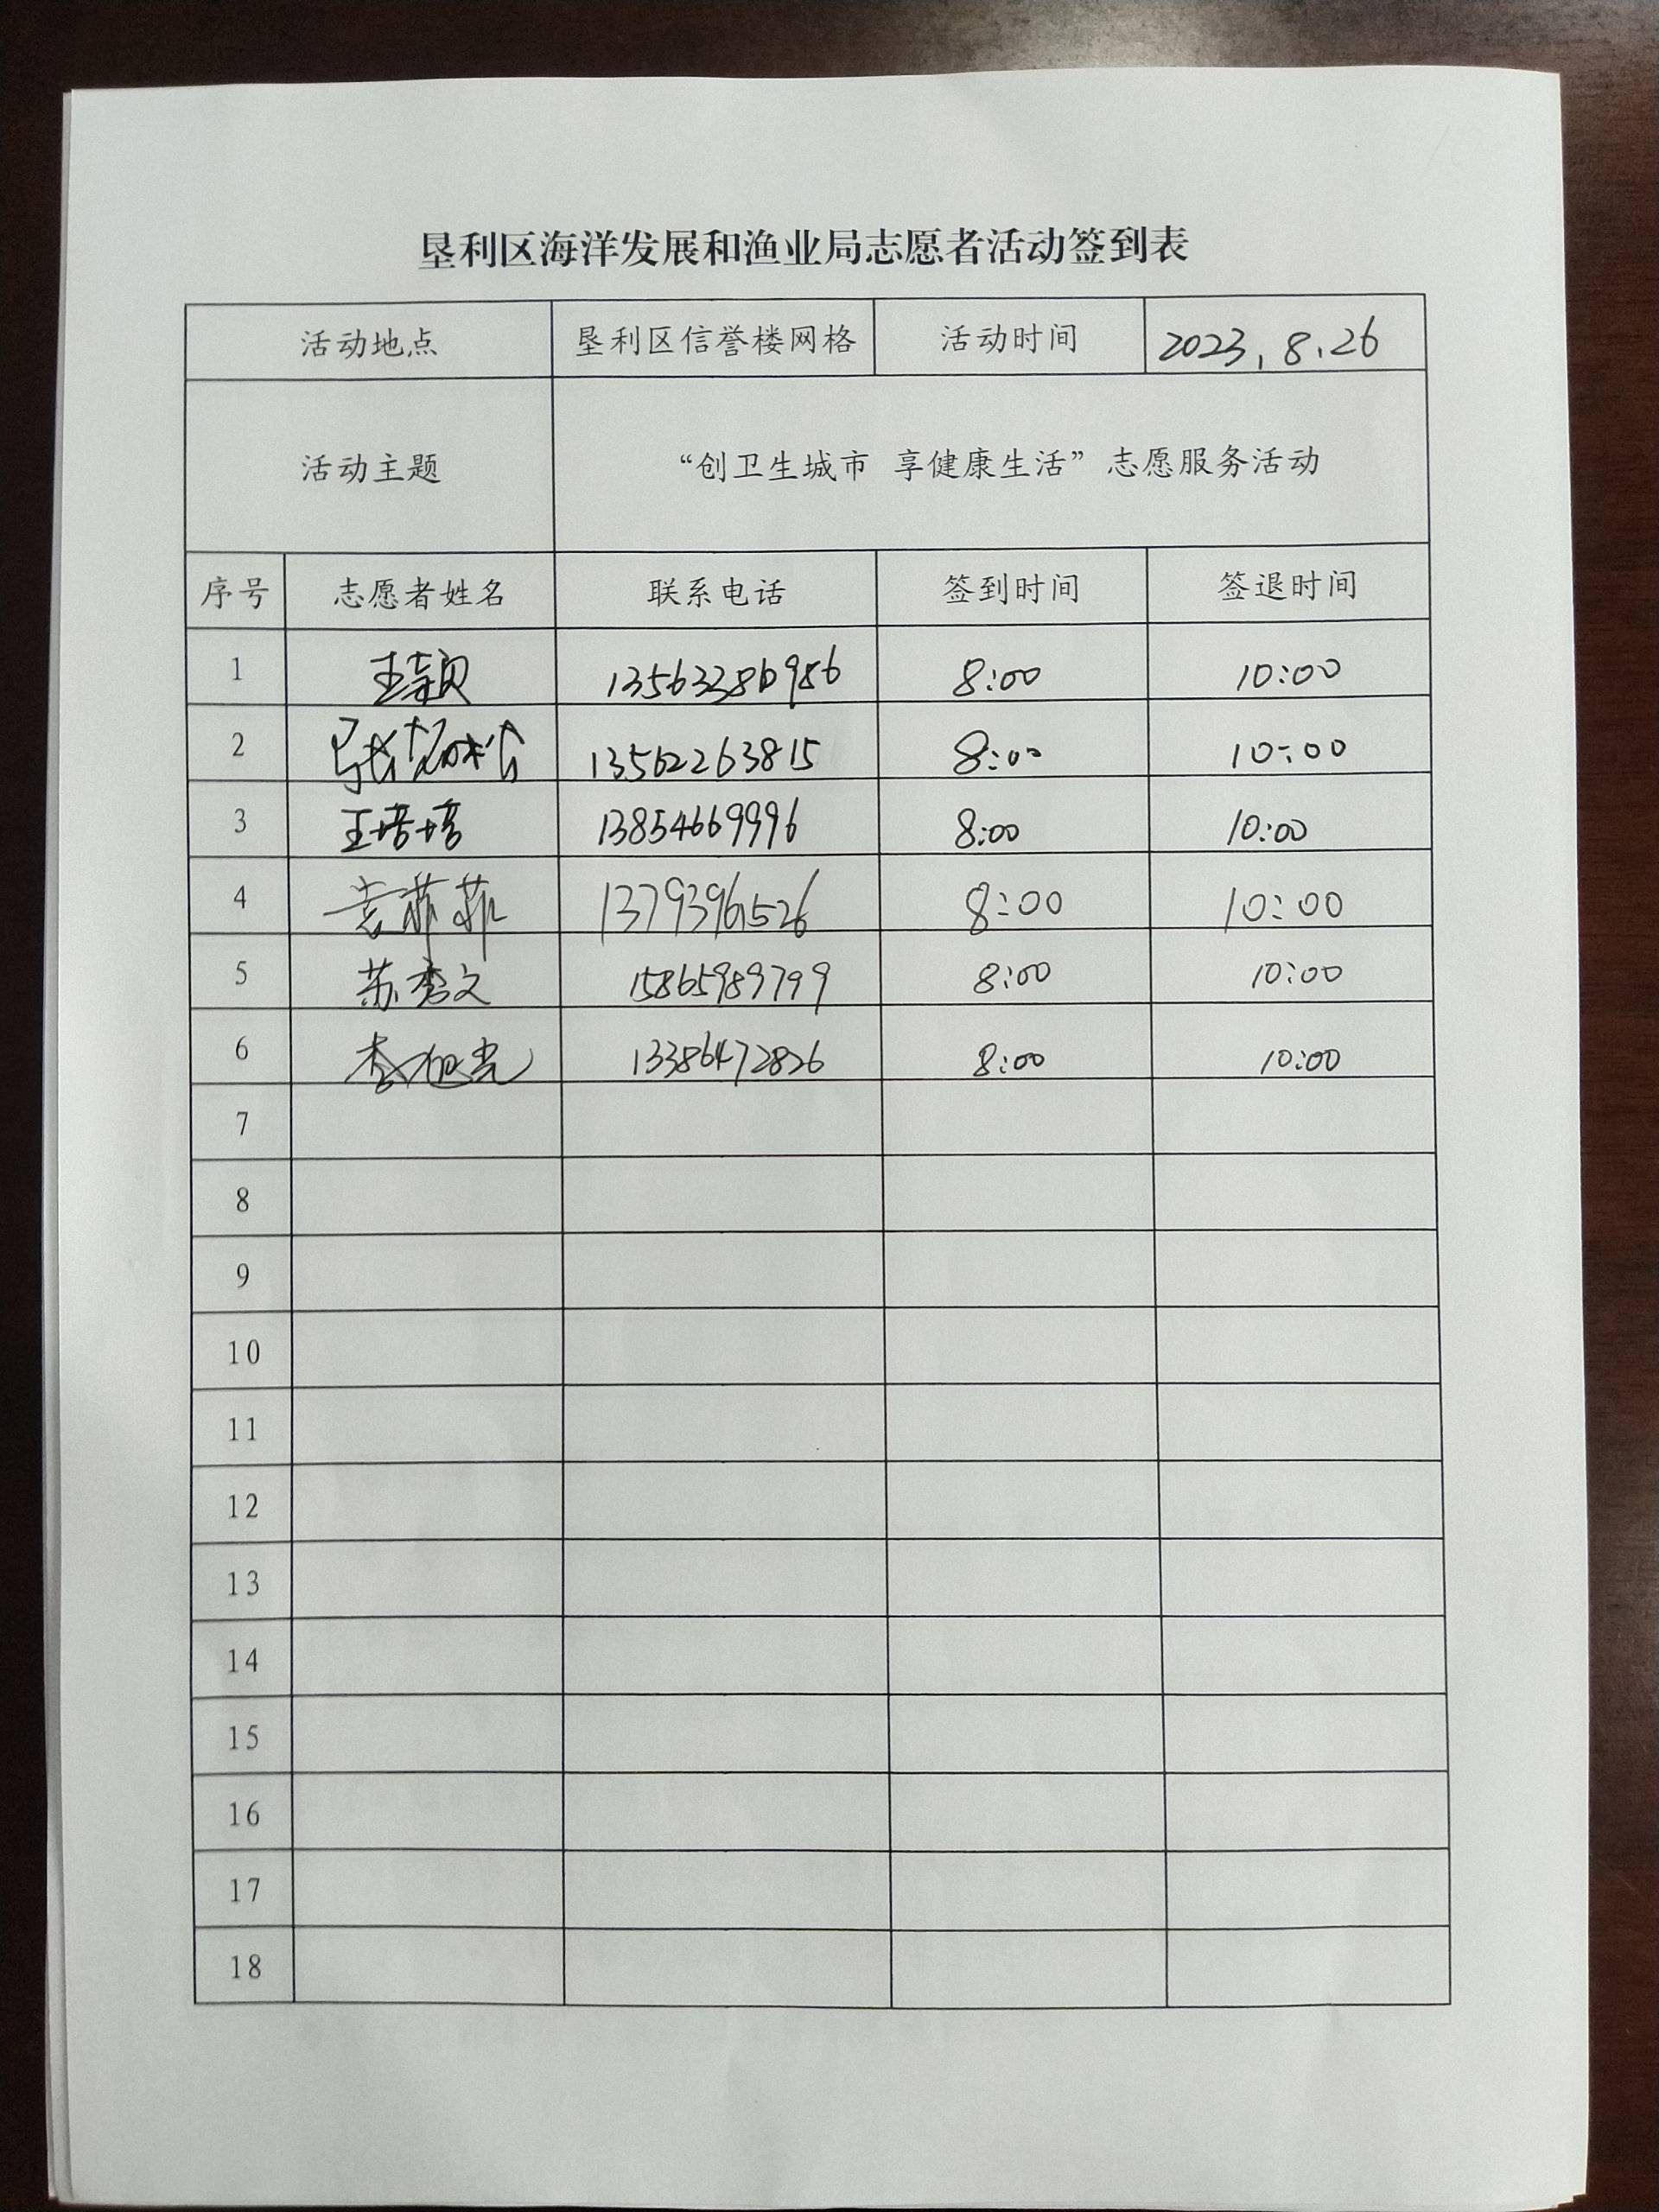 垦利区海洋发展和渔业局志愿者活动签到表
活动地点 垦利区信誉楼网格 活动时间 2023.8.26
活动主题 “创卫生城市 享健康生活”志愿服务活动
序号 志愿者姓名 联系电话 签到时间 签退时间
1 王颖 8:00 10:00
2 13562263815 8:00 10:00
3 王培培 13854669996 8:00 10:00
4 袁菲菲 13793961526 8:00 10:00
5 苏秀文 15865989799 8:00 10:00
6 李旭光 13386472826 8:00 10:00
7
8
9
10
11
12
13
14
15
16
17
18